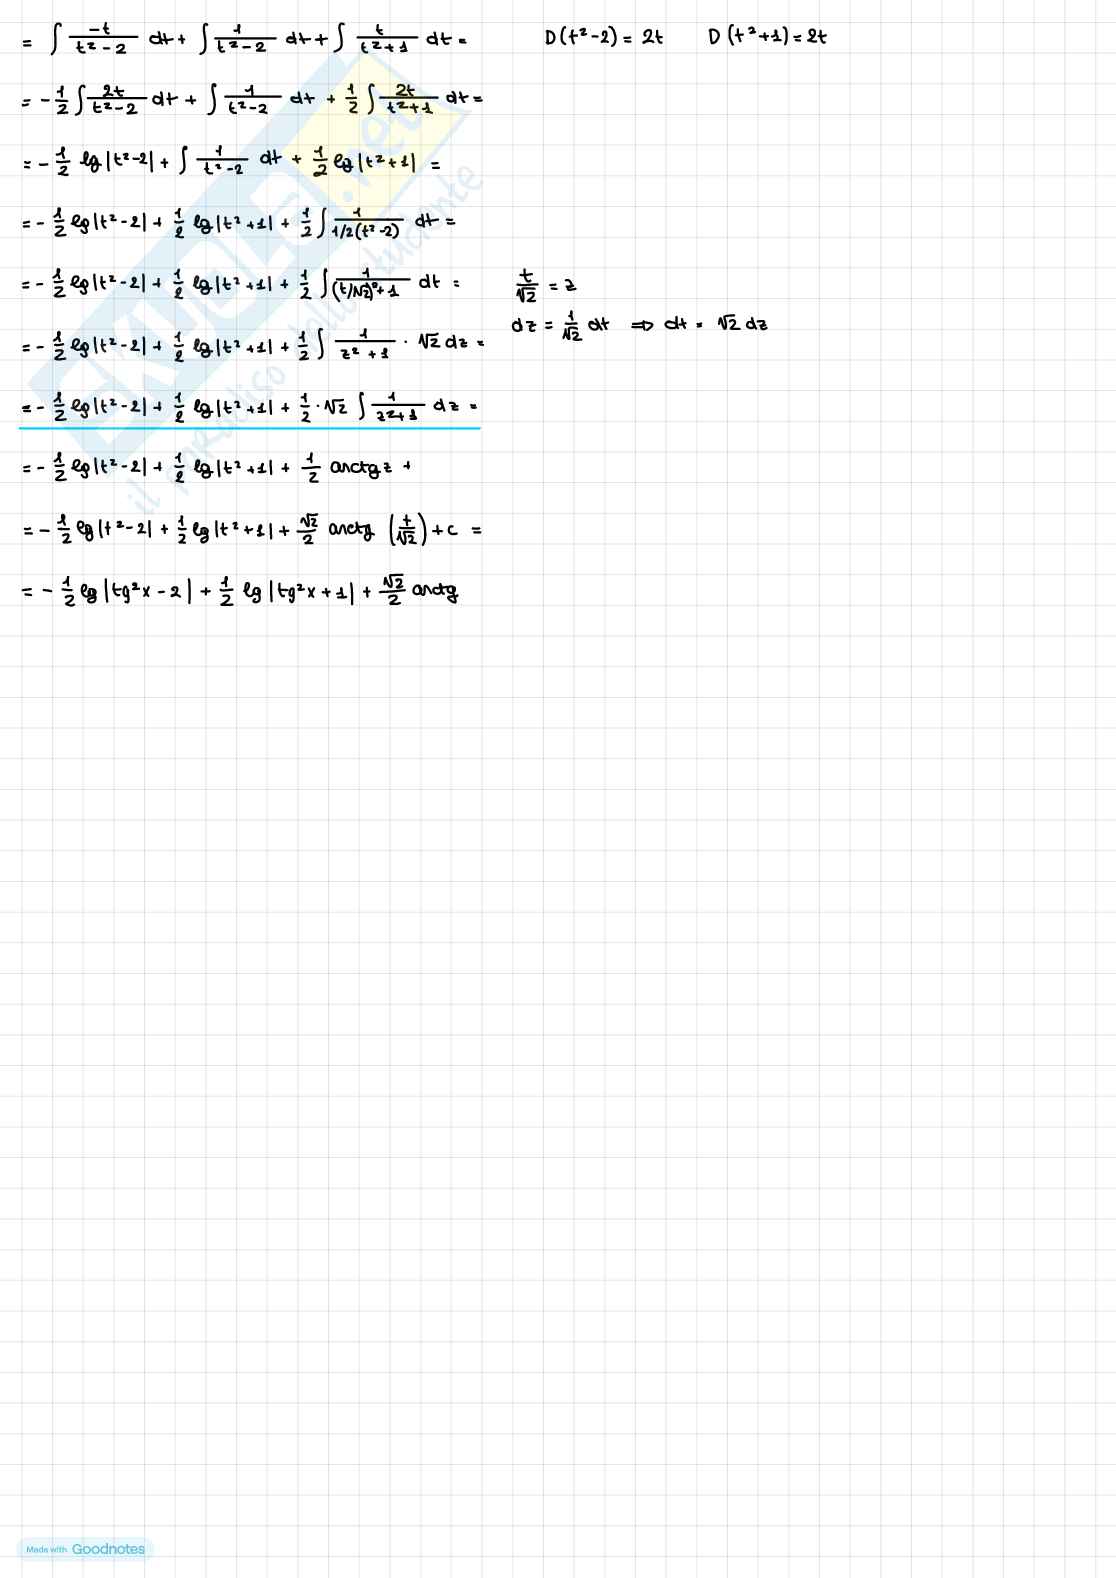 = ∫ -t/(t²-2) dt + ∫ 1/(t²-2) dt + ∫ t/(t²+1) dt = D(t²-2) = 2t D(t²+1) = 2t
= - 1/2 ∫ 2t/(t²-2) dt + ∫ 1/(t²-2) dt + 1/2 ∫ 2t/(t²+1) dt =
= - 1/2 lg|t²-2| + ∫ 1/(t²-2) dt + 1/2 lg|t²+1| =
= - 1/2 lg|t²-2| + 1/2 lg|t²+1| + 1/2 ∫ 1/(1/2(t²-2)) dt =
= - 1/2 lg|t²-2| + 1/2 lg|t²+1| + 1/2 ∫ 1/((t/√2)²+1) dt = t/√2 = z
dz = 1/√2 dt ⇒ dt = √2 dz
= - 1/2 lg|t²-2| + 1/2 lg|t²+1| + 1/2 ∫ 1/(z²+1) · √2 dz =
= - 1/2 lg|t²-2| + 1/2 lg|t²+1| + 1/2 · √2 ∫ 1/(z²+1) dz =
= - 1/2 lg|t²-2| + 1/2 lg|t²+1| + 1/2 arctg z +
= - 1/2 lg|t²-2| + 1/2 lg|t²+1| + √2/2 arctg (t/√2) + c =
= - 1/2 lg|tg²x - 2| + 1/2 lg|tg²x + 1| + √2/2 arctg
SKUOLA.net
il paradiso dello studente
Made with Goodnotes